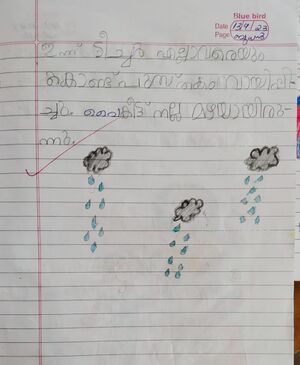 Blue bird
Date 13/9/23
Page ബുധൻ
ഇന്ന് ടീച്ചർ എല്ലാവരെയും
കൊണ്ട് പുസ്തകം വായിപ്പി-
ച്ചു. വൈകീട്ട് നല്ല മഴയായിരു-
ന്നു.